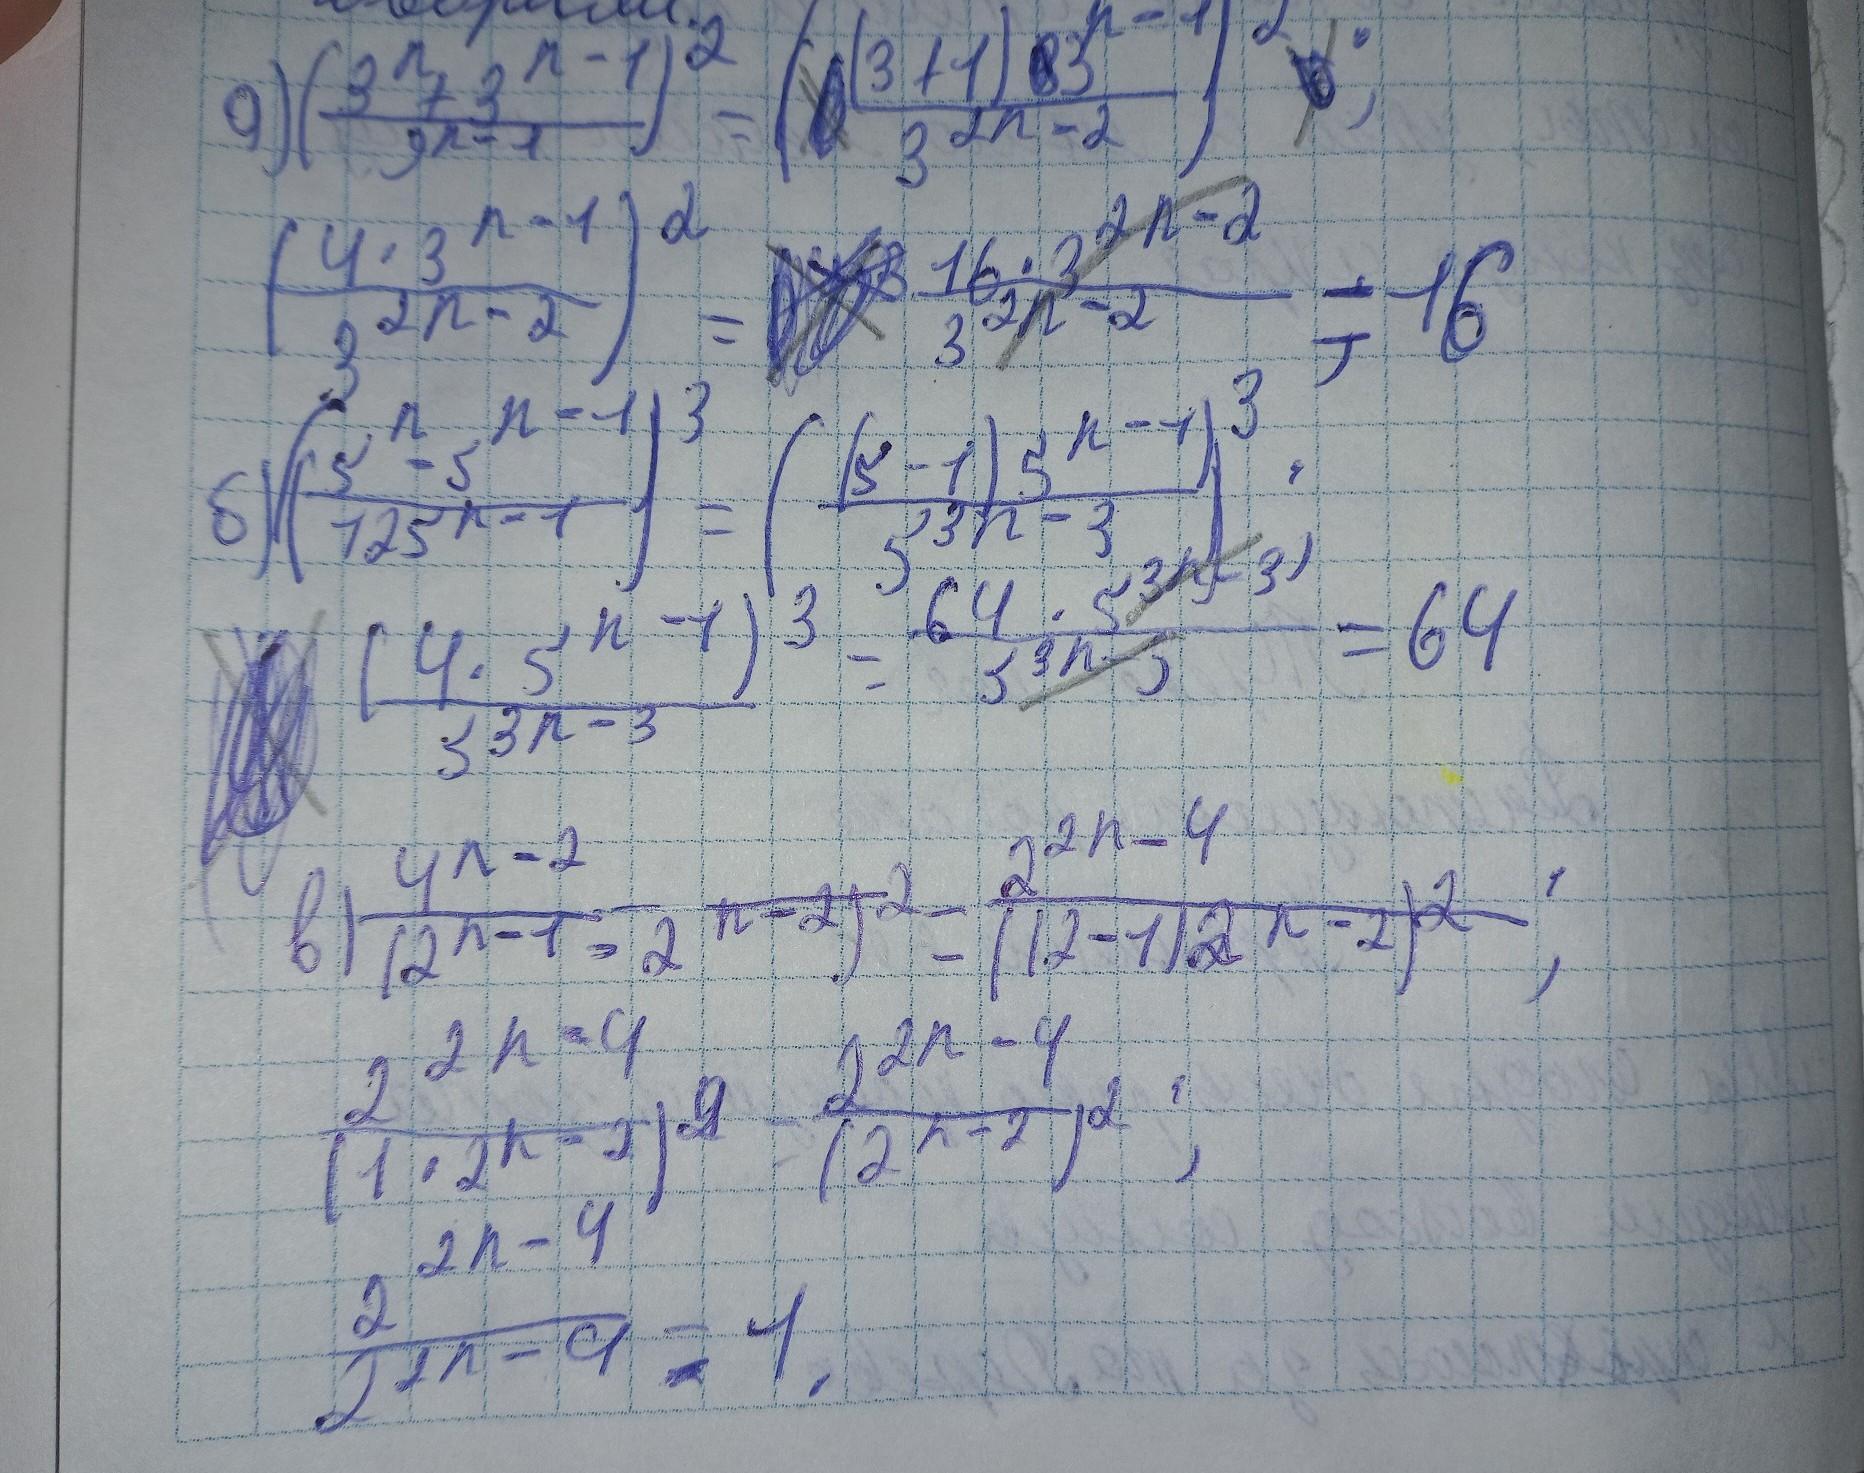 а) ((3^n + 3^(n-1))/(9^(n-1)))^2 = (((3+1)3^(n-1))/(3^(2n-2)))^2;
((4·3^(n-1))/(3^(2n-2)))^2 = (16·3^(2n-2))/(3^(2n-2)) = 16
б) ((5^n - 5^(n-1))/(125^(n-1)))^3 = (((5-1)5^(n-1))/(5^(3n-3)))^3;
((4·5^(n-1))/(5^(3n-3)))^3 = (64·5^(3n-3))/(5^(3n-3)) = 64
в) (4^(n-2))/((2^(n-1) - 2^(n-2))^2) = (2^(2n-4))/(((2-1)2^(n-2))^2);
(2^(2n-4))/((1·2^(n-2))^2) = (2^(2n-4))/((2^(n-2))^2);
(2^(2n-4))/(2^(2n-4)) = 1.